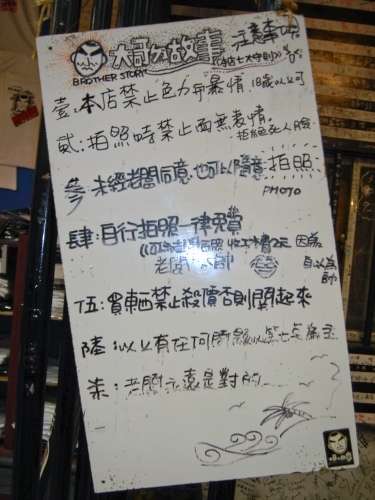 大哥的故事
BROTHER STORY
(本店七大守則)
注意事項
壹:本店禁止色力爭暴情,18歲以上可
貳:拍照時禁止面無表情。
拒絕死人臉
參 未經老闆同意,也可以隨意拍照
PHOTO
肆:自行拍照一律免費
因為
老闆太帥
自以為
帥
伍:買東西禁止殺價否則關起來
陸:以上有任何問題以第七條為主
柒:老闆永遠是對的